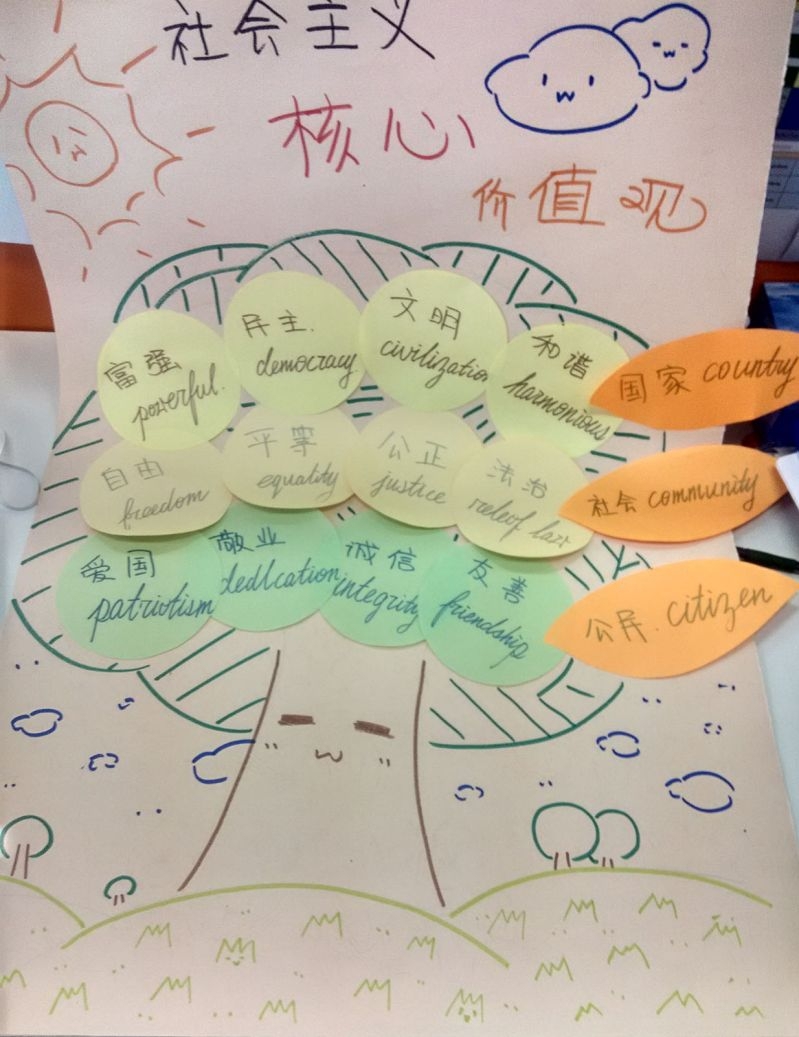 社会主义
核心
价值观
富强
powerful.
民主.
democracy
文明
civilization
和谐
harmonious
国家 country
自由
freedom
平等
equality
公正
justice
法治
releof law
社会 community
爱国
patriotism
敬业
dedlcation
诚信
integrity
友善
friendship
公民. citizen